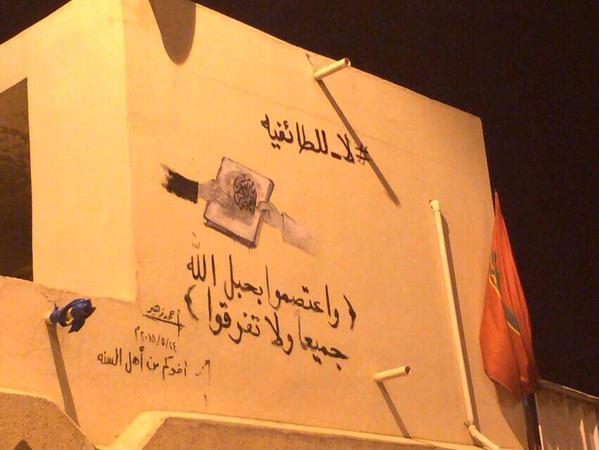 #لا_للطائفيه
﴿واعتصموا بحبل الله
جميعا ولا تفرقوا﴾
أحمد زهير
٢٠١٥/٥/٢٤م
أخوكم من أهل السنه